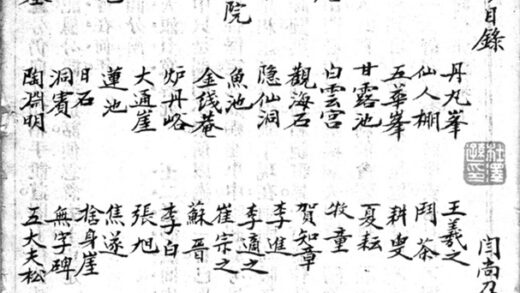 目錄
閆尚
丹丸峯
仙人棚
五華峯
甘露池
白雲宮
觀海石
隐仙洞
院
魚池
金綫菴
炉丹峪
大通崖
蓮池
日石
洞賓
陶淵明
王羲之
鬥茶
耕叟
夏耘
牧童
賀知章
李進
李適之
崔宗之
蘇晋
李白
張旭
焦遂
捨身崖
無字碑
五大夫松